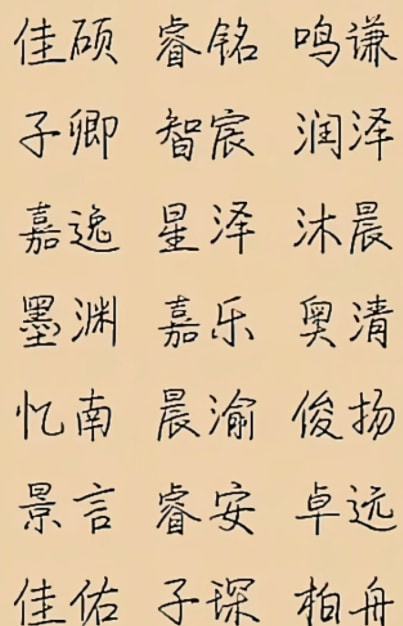 佳硕 睿铭 鸣谦
子卿 智宸 润泽
嘉逸 星泽 沐晨
墨渊 嘉乐 奥清
忆南 晨渝 俊扬
景言 睿安 卓远
佳佑 子琛 柏舟